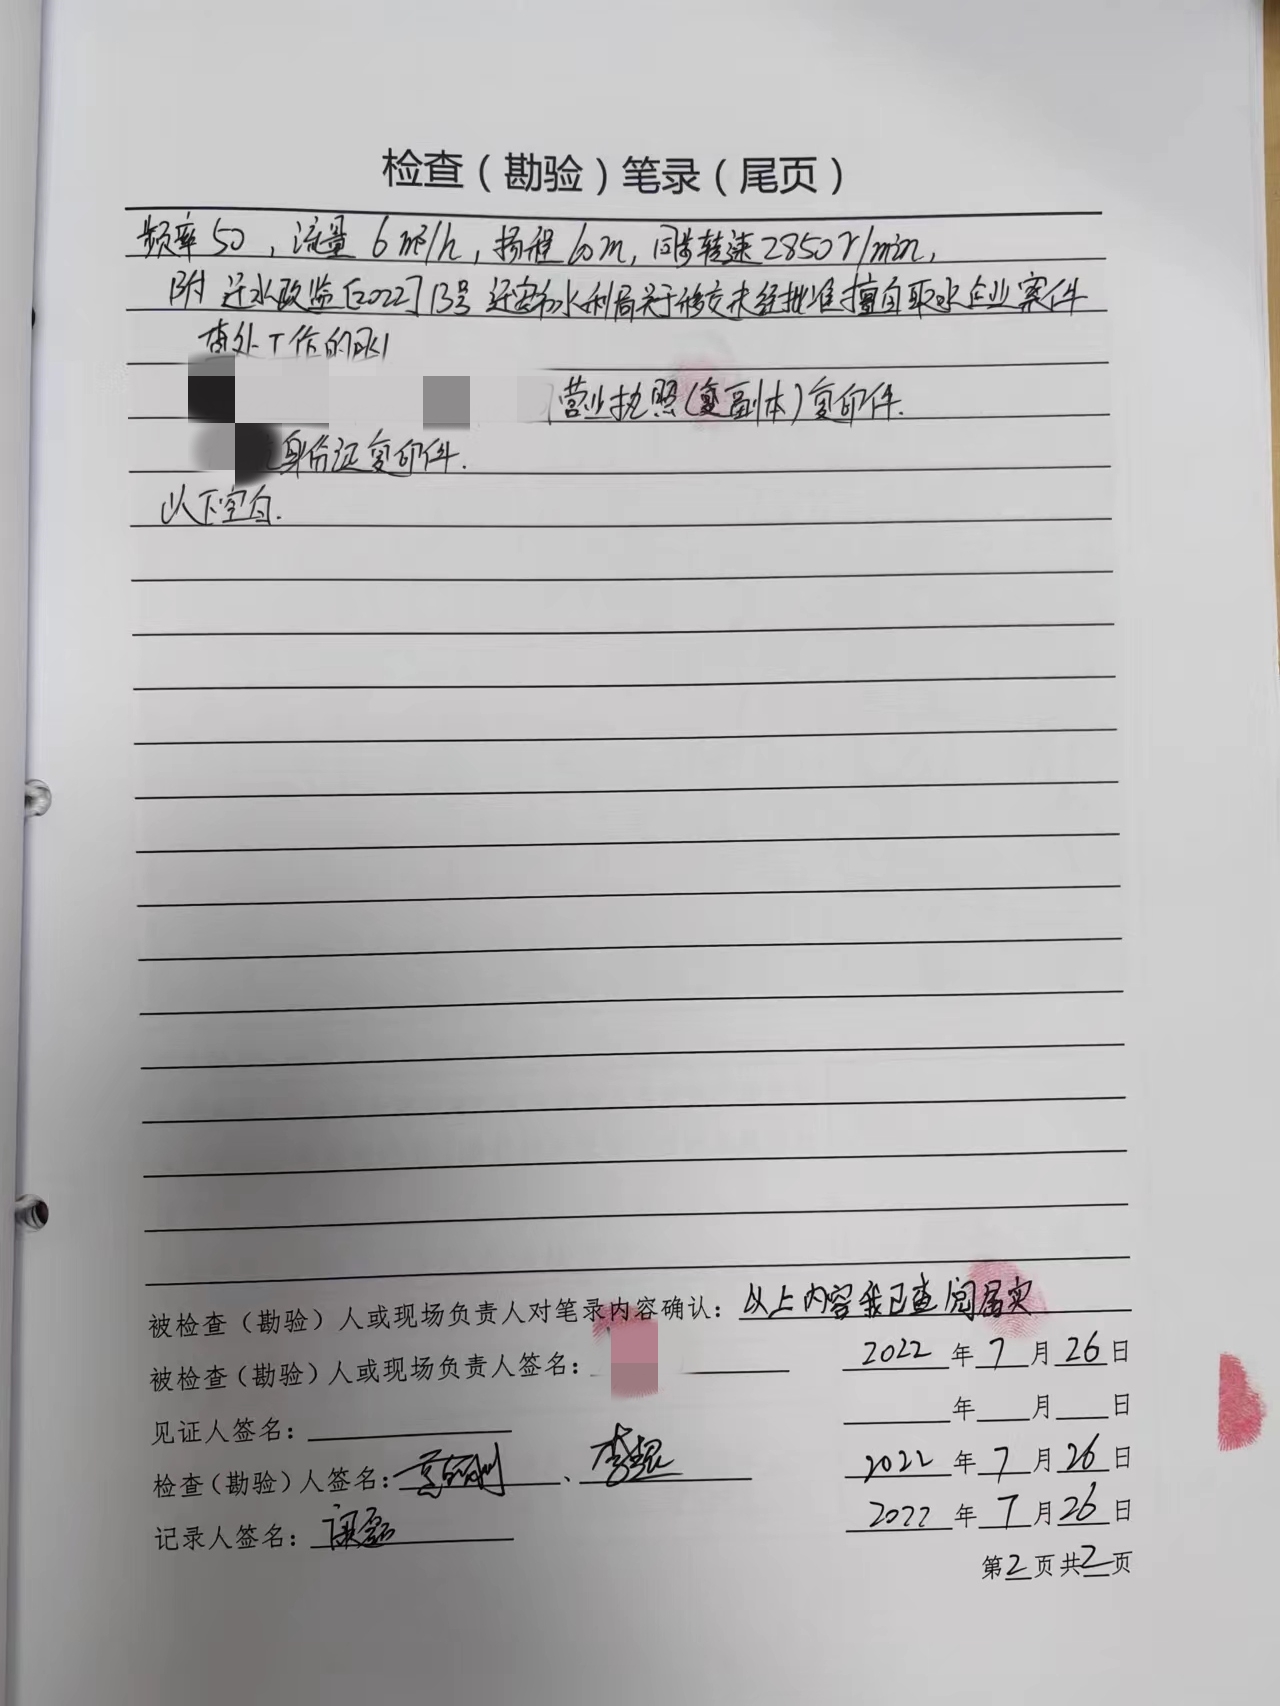 检查（勘验）笔录（尾页）
频率50，流量6m³/h，扬程60m，同步转速2850r/min，
附 迁水政监[2022]13号 迁安市水利局关于移交未经批准擅自取水企业案件
查处工作的函
营业执照（复副本）复印件.
身份证复印件.
以下空白.
被检查（勘验）人或现场负责人对笔录内容确认：以上内容我已查阅属实
被检查（勘验）人或现场负责人签名： 2022年7月26日
见证人签名： 年 月 日
检查（勘验）人签名： 、李 2022年7月26日
记录人签名： 2022年7月26日
第2页共2页